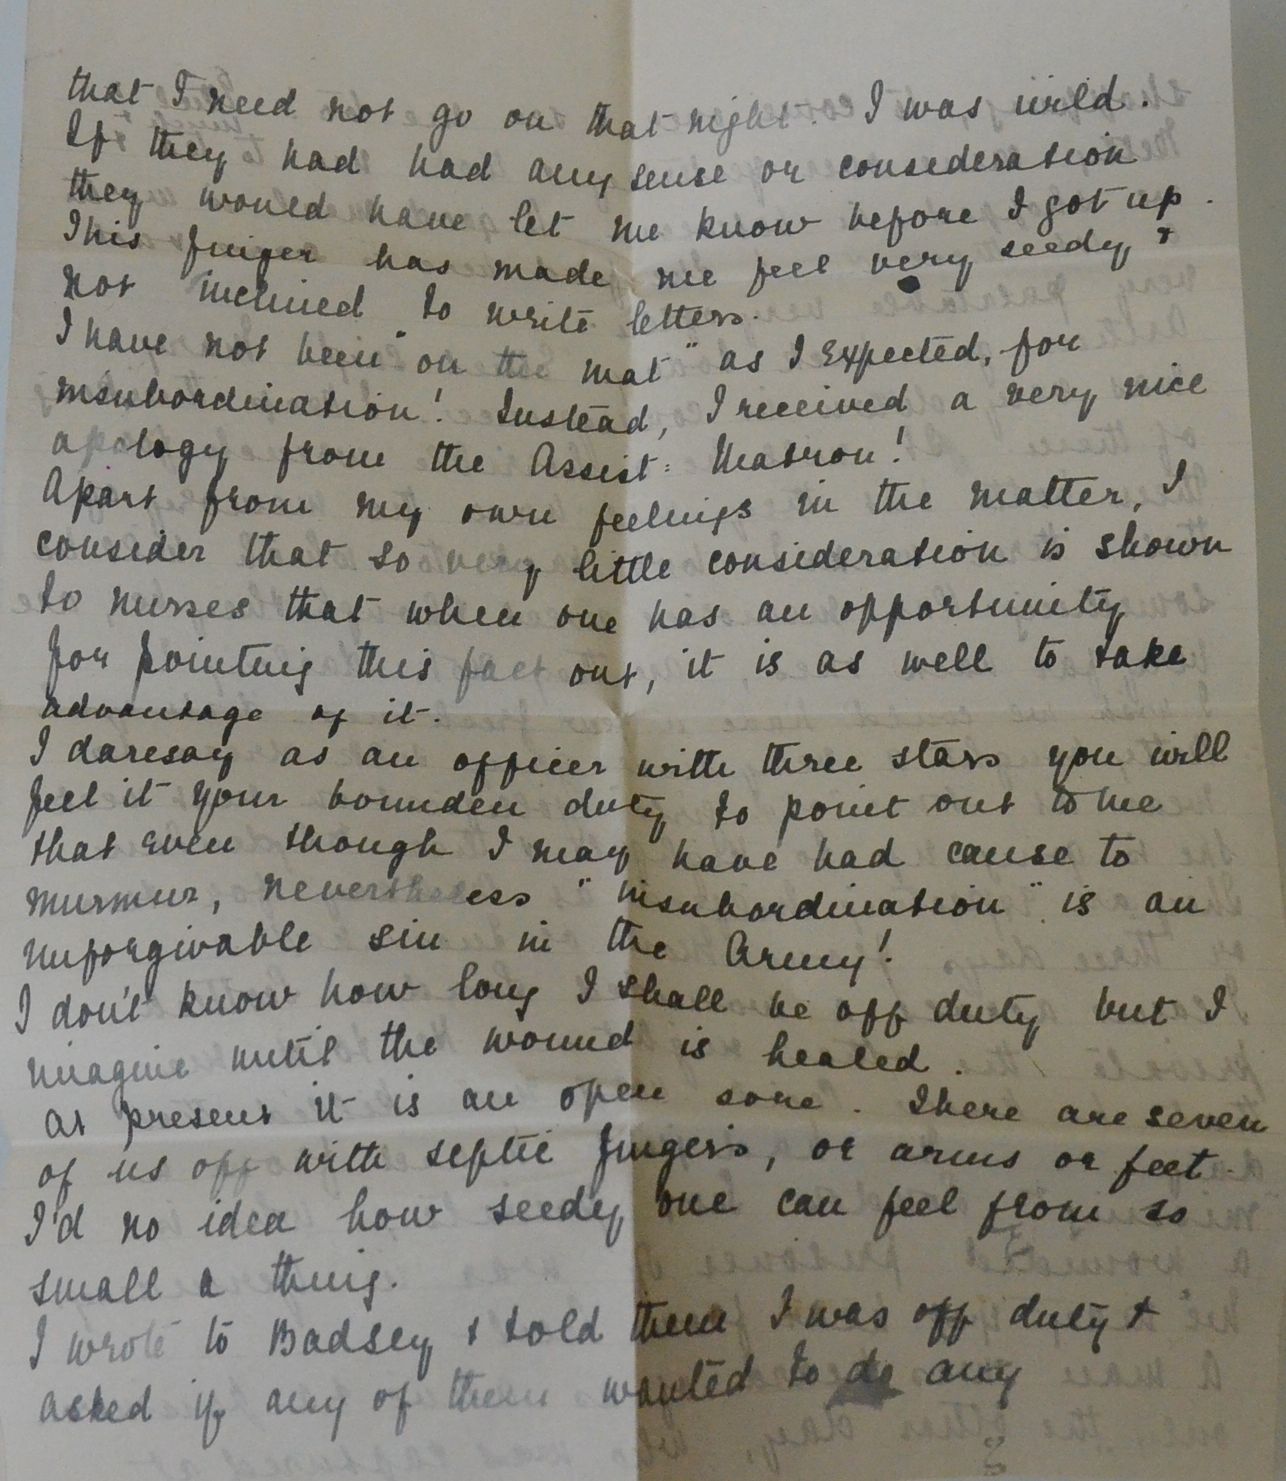 that I need not go on that night. I was wild.
If they had had any sense or consideration
they would have let me know before I got up.
This finger has made me feel very seedy &
not inclined to write letters.
I have not been "on the mat" as I expected, for
insubordination! Instead, I received a very nice
apology from the Assist: Matron!
Apart from my own feelings in the matter, I
consider that so very little consideration is shown
to nurses that when one has an opportunity
for pointing this fact out, it is as well to take
advantage of it.
I daresay as an officer with three stars you will
feel it your bounden duty to point out to me
that even though I may have had cause to
murmur, nevertheless "insubordination" is an
unforgivable sin in the Army!
I don't know how long I shall be off duty but I
imagine until the wound is healed.
At present it is an open sore. There are seven
of us off with septic fingers, or arms or feet.
I'd no idea how seedy one can feel from so
small a thing.
I wrote to Badsey & told them I was off duty &
asked if any of them wanted to do any